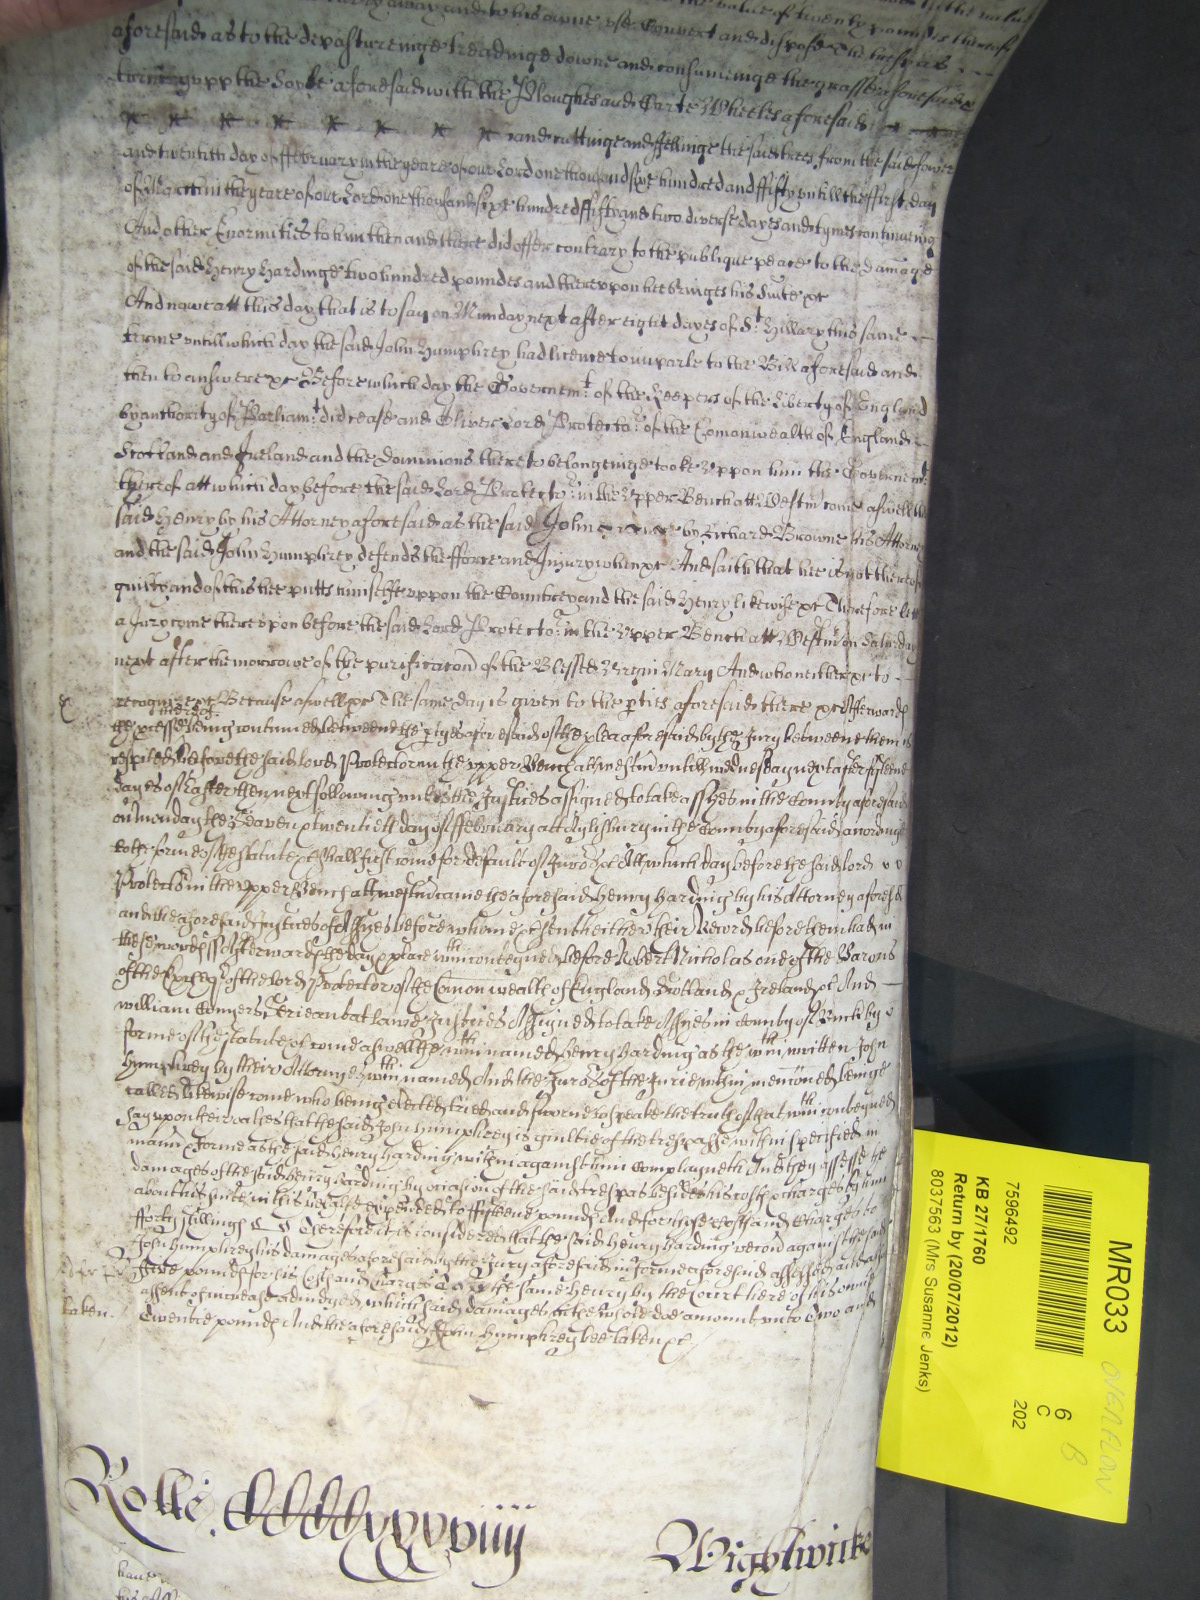 the value of twenty poundes thereof
away and to his owne use Convert and dispose The trespas
aforesaid as to the depastureinge treadinge downe and consumeinge the grasse aforesaid &
turneing upp the soyle aforesaid with the Ploughes and Carte Wheeles aforesaid
and cuttinge and fellinge the said trees from the said fower
and twentith day of ffebruary in the yeare of our Lord one thousand six hundred and ffifty untill the ffirst day
of March in the yeare of our Lord one thousand sixe hundred ffifty and two diverse dayes and tymes continueing
And other Enormities to him then and there did offer contrary to the publique peace to the damage
of the said Henry Hardinge two hundred poundes and thereupon hee bringes his Suite &c
And nowe att this day that is to say on Munday next after eight dayes of St Hillary this same
terme untill which day the said John Humphrey had licence to imparle to the Bill aforesaid and
then to answere &c Before which day the Governemt of the Keepers of the Liberty of England
by authority of Parliamt did cease and Oliver Lord Protector of the Comonwealth of England
Scotland and Ireland and the dominions thereto belongeinge tooke uppon him the Governemt
thereof att which day before the said Lord Protector in the Upper Bench att Westm come aswell the
said Henry by his Attorney aforesaid as the said John by Richard Browne his Attorney
and the said John Humphrey defends the fforce and Injury when &c And saith that hee is not thereof
guilty and of this hee putts himselfe uppon the Countrey and the said Henry likewise &c Therefore lett
a Jury come thereupon before the said Lord Protector in the Upper Bench att Westm on Saturday
next after the morrowe of the purificacon of the Blessed Virgin Mary And who neither &c to
recognize &c Because aswell &c The same day is given to the pties aforesaid there &c Afterwards
thereof
the processe being continued betweene the ptyes aforesaid of the plea aforesaid by the Jury betweene them is
respited before the said Lord Protector in the upper Bench att westm untill wednesday next after fifteene
dayes of Easter then next following unles the Justices assigned to take assizes in the County aforesaid
on monday the Seaven & twentieth day of ffebruary att Aylisbury in the County aforesaid according
to the forme of the statute &c shall first come for default of Jurors &c Att which day before the said lord
Protector in the upper Bench att westm came the aforesaid Henry Harding by his Attorney aforesd
and the aforesaid Justices of Assizes before whome &c sent hither their Record before them had in
these words ss Afterwards the day & place within conteyned before Robert Nicholas one of the Barons
of the Excheqr of the Lord Protector of the Comon wealth of England Scotland & Ireland &c And
william Conyers Serieant at lawe Justices Assigned to take Assizes in County of Buck by
forme of the statute &c come aswell the within named Henry harding as the within written John
Humphrey by their Attorneys within named And the Jurors of the Jurie within menconed beinge
called likewise come who being elected tried and sworne to speake the truth of that within conteyned
say upon their oathes that the said John humphrey is guiltie of the trespasse within specified in
manner & forme as the said Henry harding within against him complayneth And they assesse the
damages of the said henry harding by occasion of the said trespas besides his costs & charges by him
about his suite in this behalfe expended to ffifteene pounds And for those costs and charges to
fforty shillings Therefore it is considered that the said Henry harding recover against the said
John Humphrey his damages aforesaid by the Jury aforesaid in forme aforesaid assessed and alsoe
ffive pounds for his Costs and charges to the same Henry by the Court here of his owne
assent of increase adiudged which said damages in the whole doe amount unto two and
Twentie pounds And the aforesaid John Humphrey bee taken &c
taken.
Rolle CCCCxxxxviiij
Wightwicke
MR033
OVERFLOW
B
6
C
202
7596492
KB 27/1760
Return by (20/07/2012)
8037563 (Mrs Susanne Jenks)